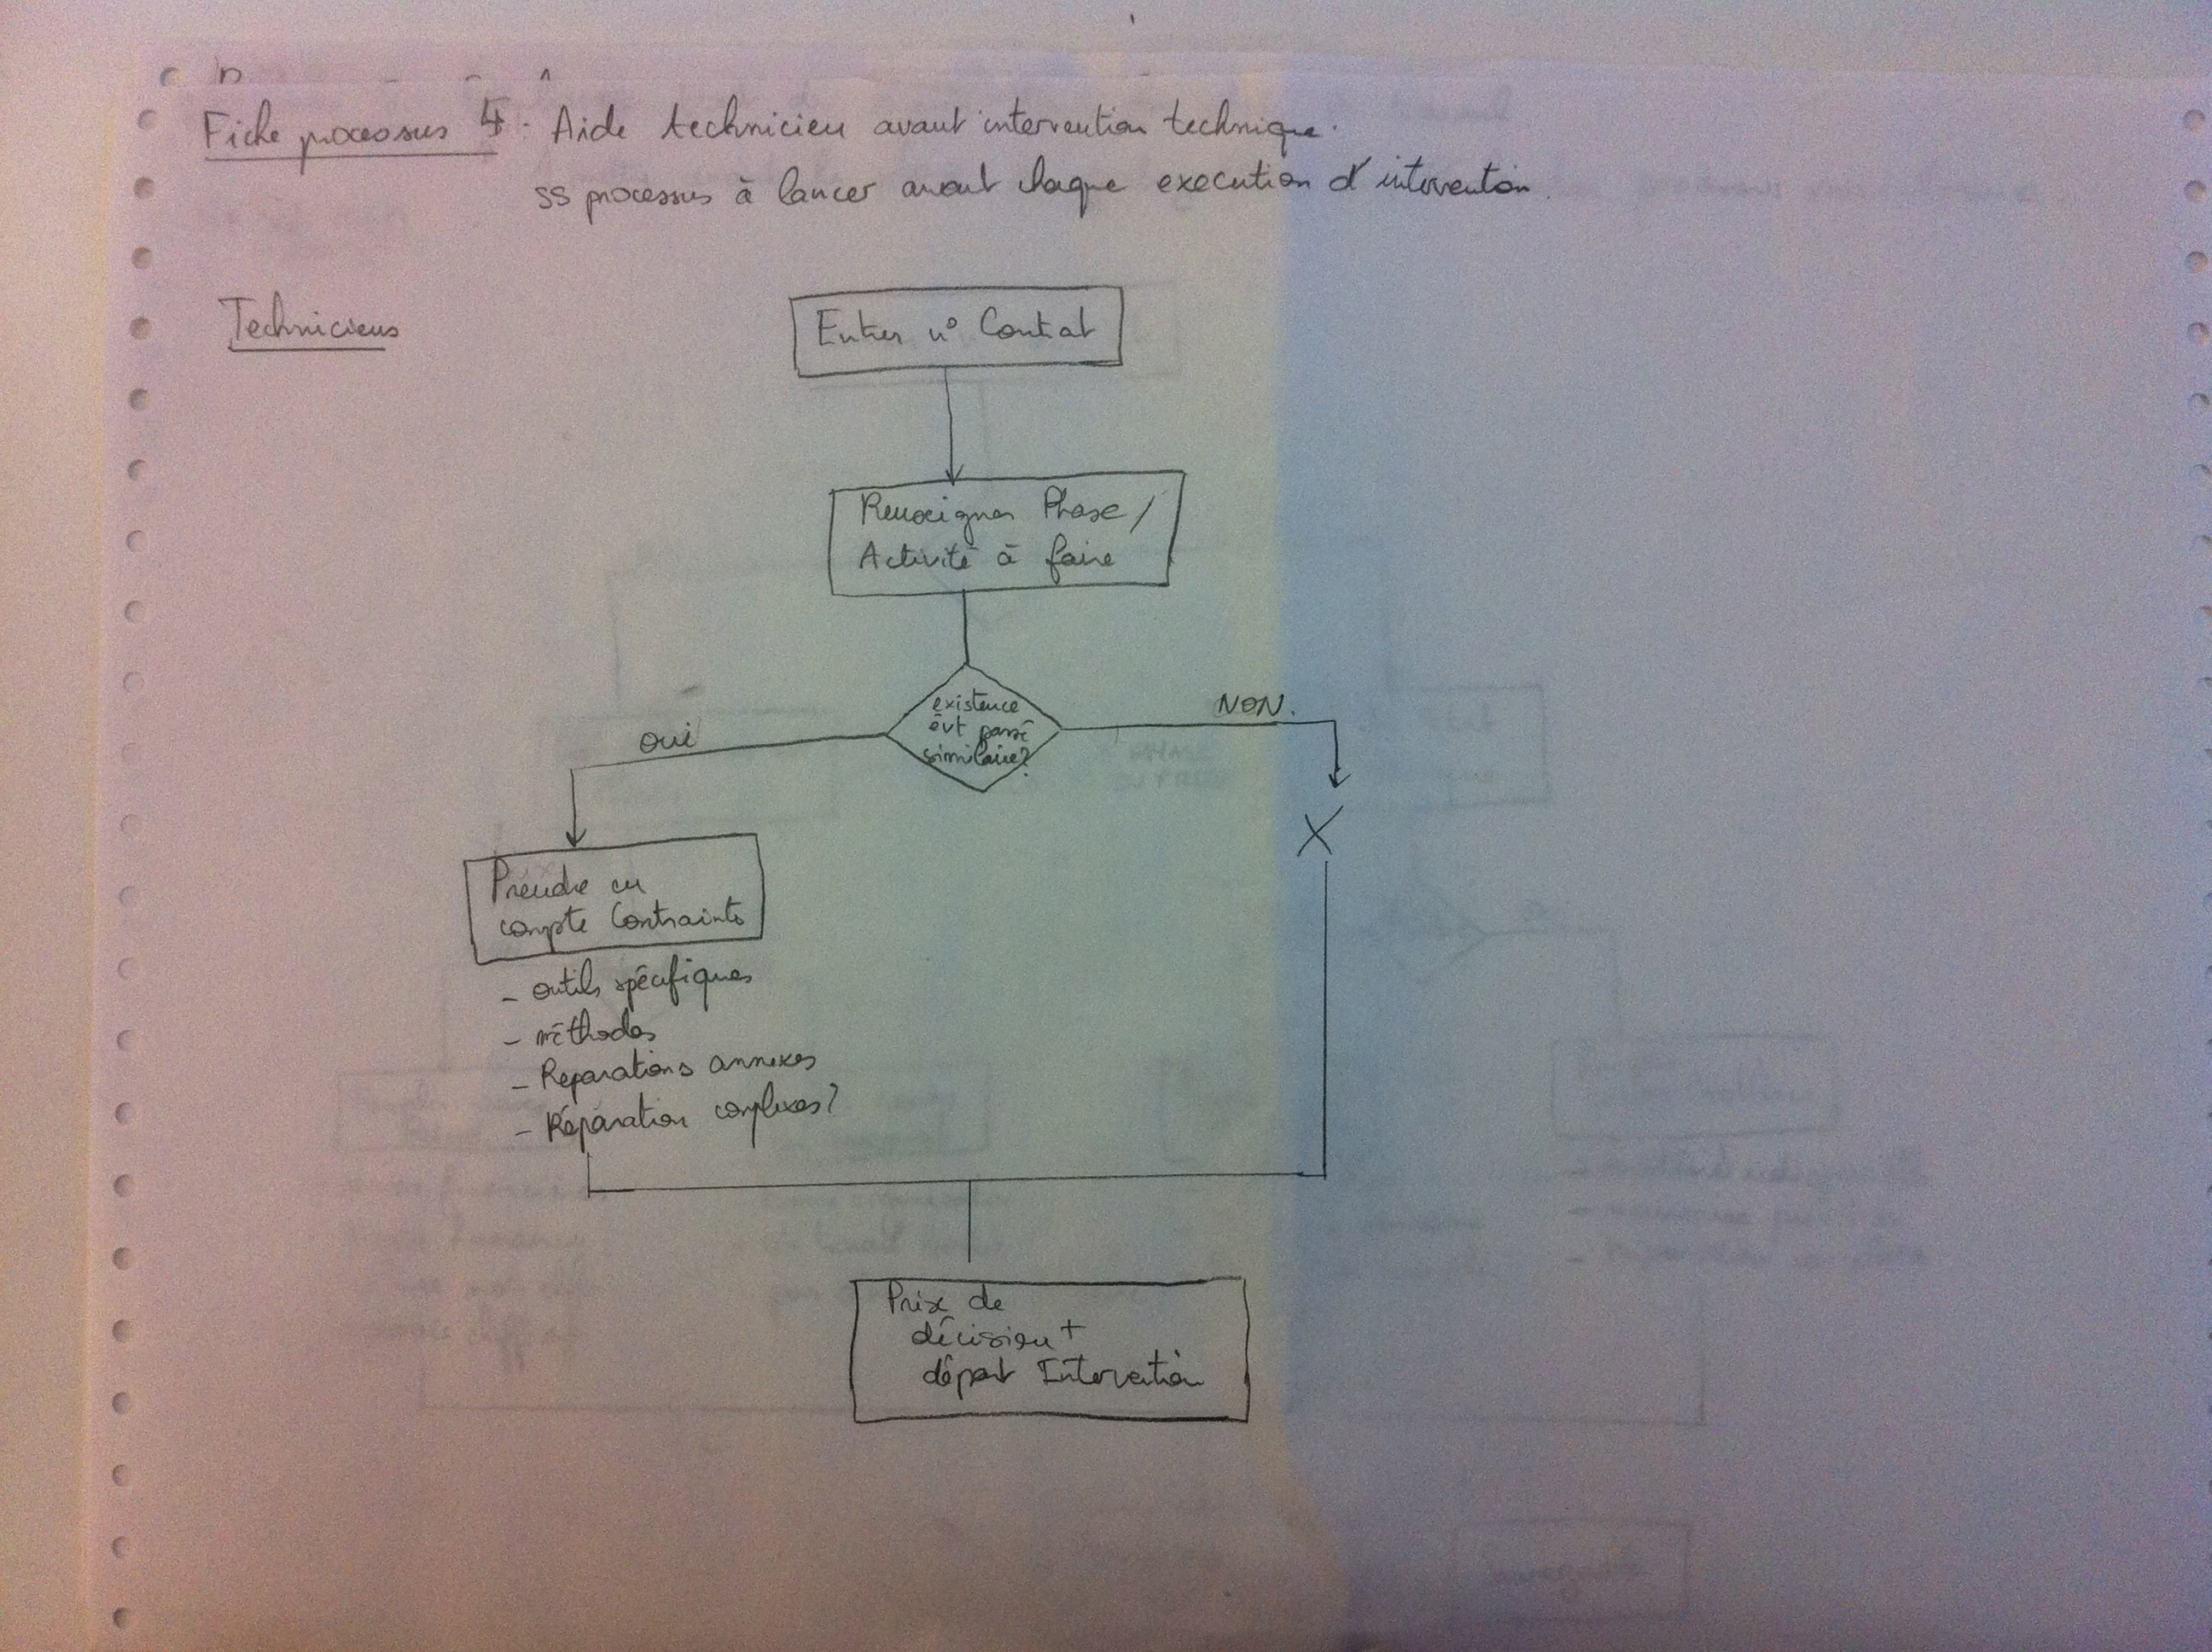 Fiche processus 4 : Aide technicien avant intervention technique.
ss processus à lancer avant chaque execution d'intervention.
Techniciens
Entrer n° Contrat
Renseigner Phase /
Activité à faire
existence
évt passé
similaire?
OUI
NON.
X
Prendre en
compte Contraintes
- outils spécifiques
- méthodes
- Reparations annexes
- Réparation complexes?
Prise de
décision +
départ Intervention